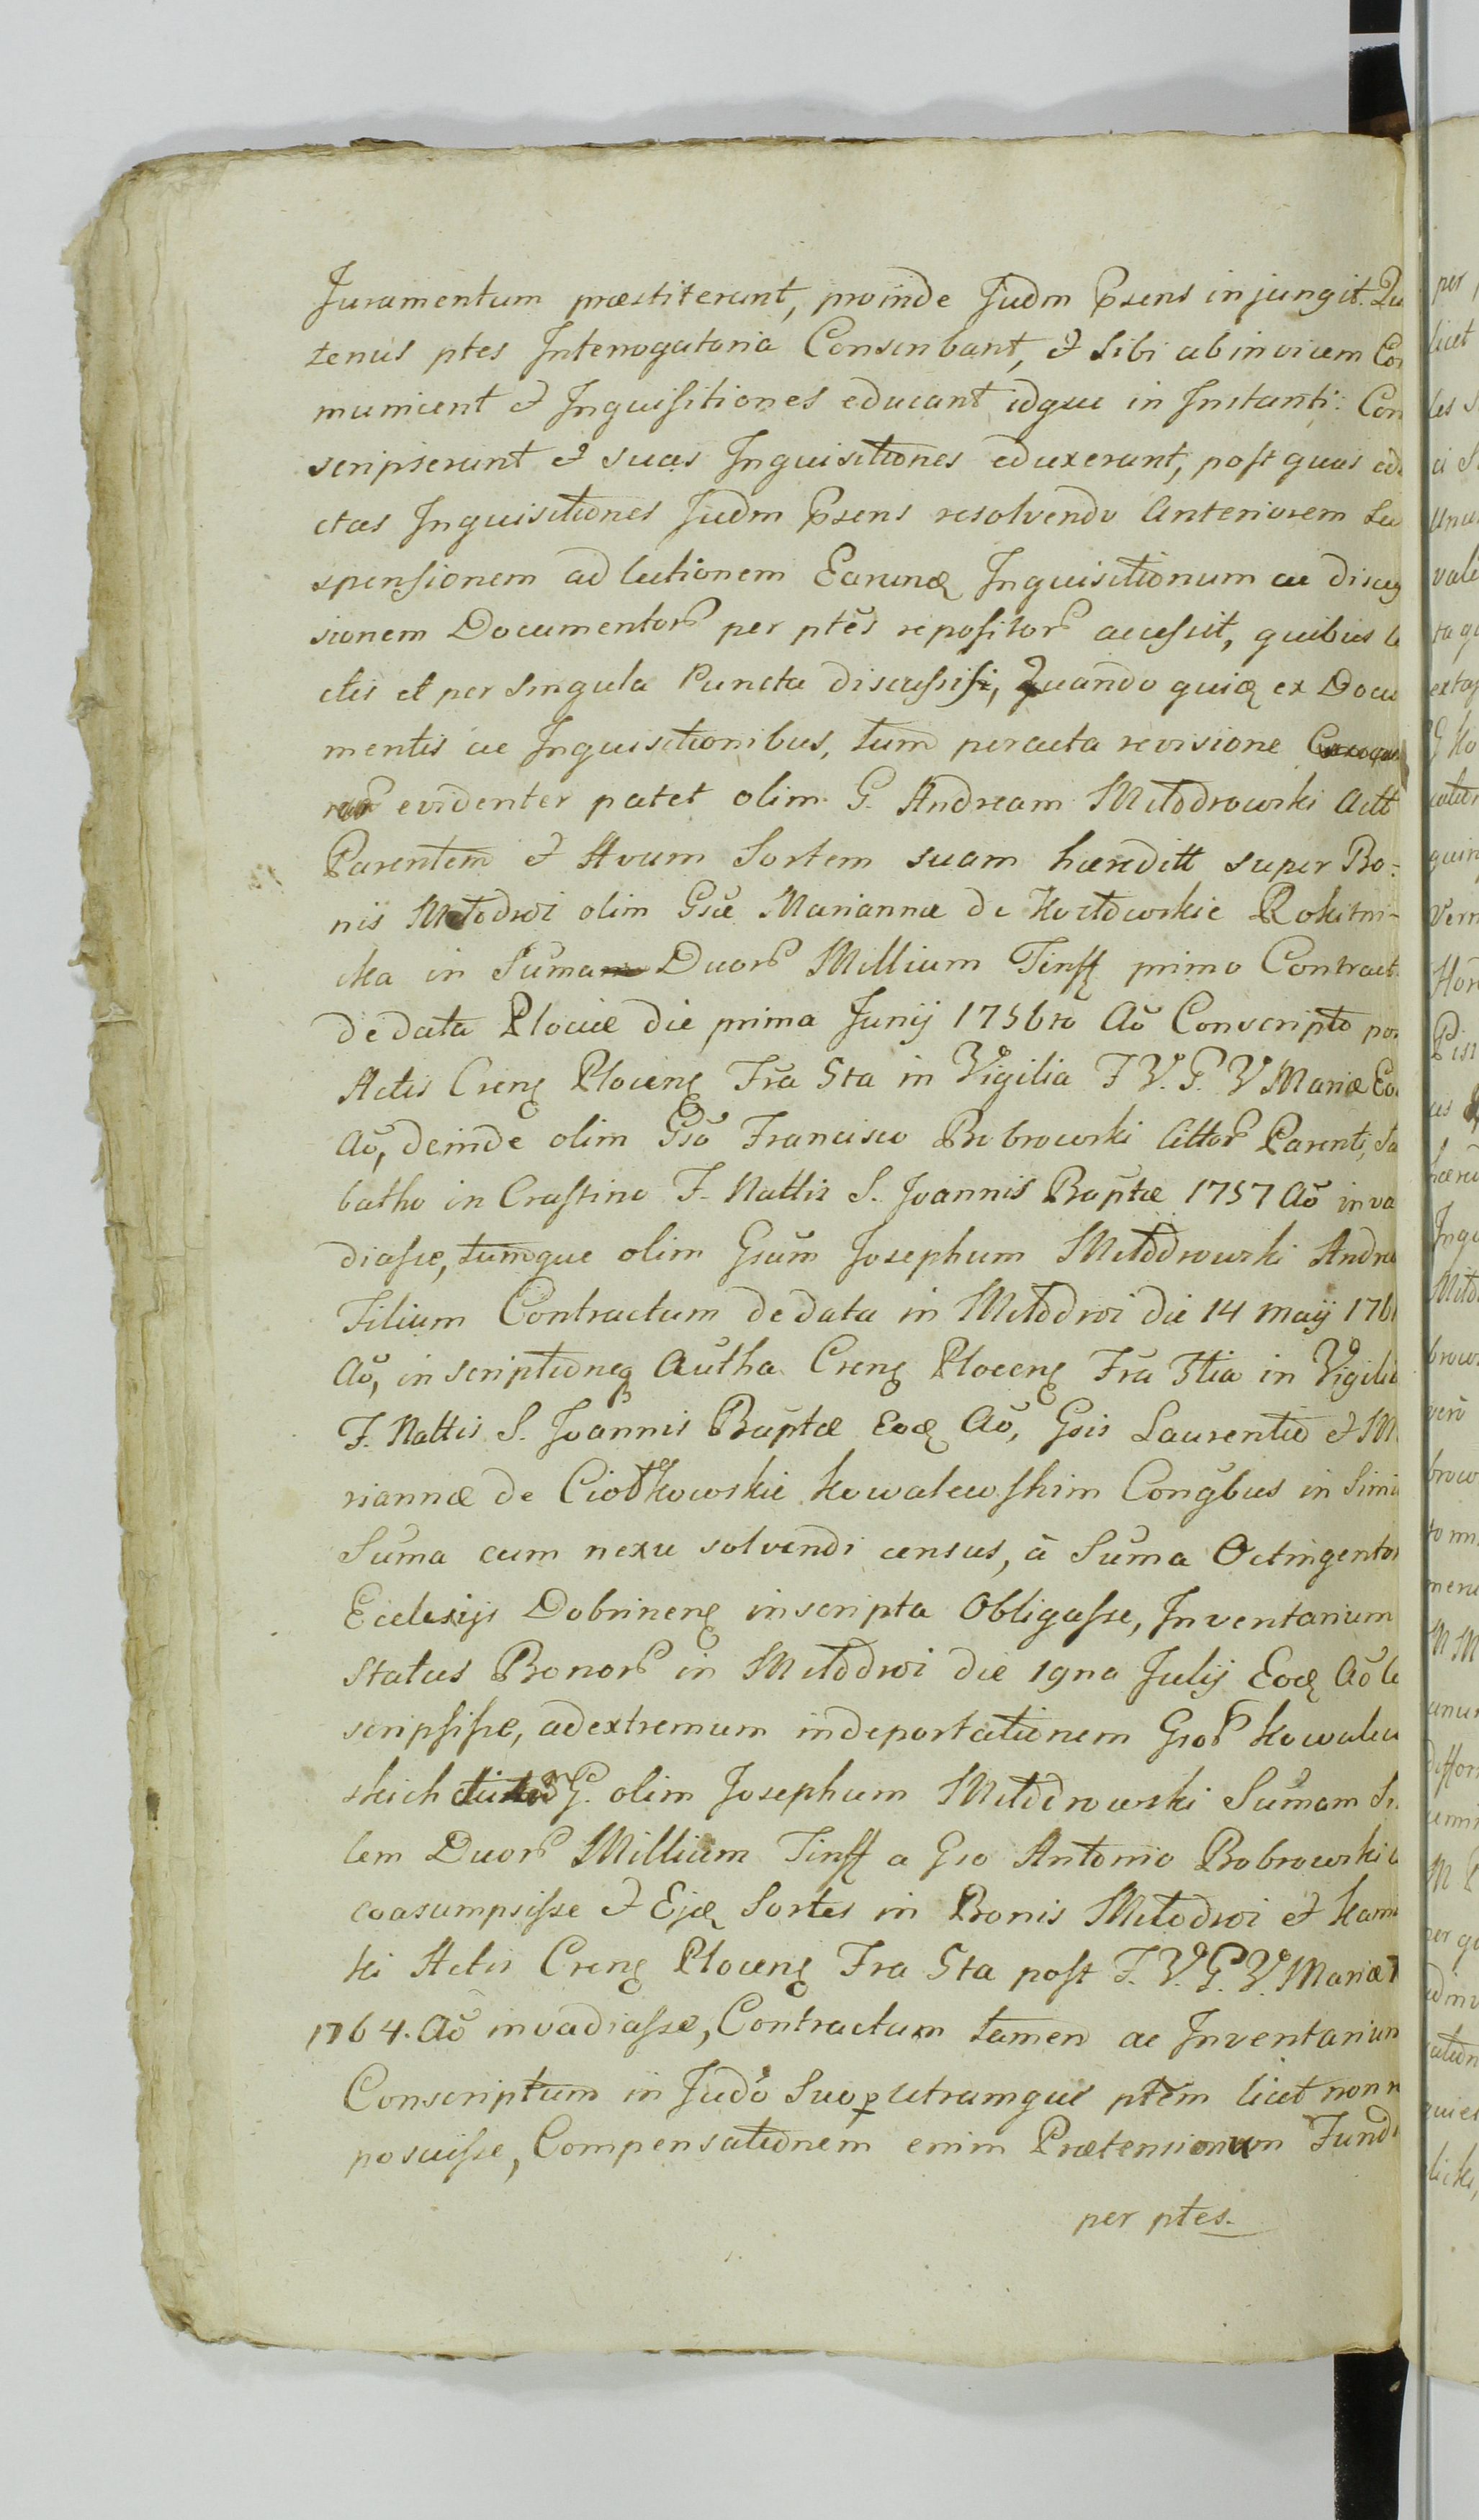 Juramentum præstiterunt, proinde Judm Pręsens injungit. Qua
tenus ptes Interrogatoria Conscribant, et Sibi ab invicem Com
municent et Inquisitiones educant idque in Instanti: Con
scripserunt et suas Inquisitiones eduxerunt, post quas edu
ctas Inquisitiones Judm Pręsens resolvendo Anteriorem Su
spensionem ad lectionem Earunq Inquisitionum ac discus
sionem Documentor per ptes repositor accessit, quibus le
ctis et per Singula Puncta discussis, Quando quiq ex Docu
mentis ac Inquisitionibus, tum peracta revisione
evidenter patet olim G. Andream Młodrowski Actt
Parentem et Avum Sortem suam hæreditt super Bo-
nis Młodroi olim Gsæ Mariannæ de Kozłowskie Rokitni-
cka in Suma Duor Millium Tinff primo Contract
de data Plociæ die prima Junij 1756to Aō Conscripto post
Actis Creng Ploceng Fra 5ta in Vigilia F. V. G. V Mariæ Eo
Aō, deinde olim Gsō Francisco Bobrowski Acttor Parenti, Sa
batho in Crastino F. Nattis S. Joannis Baptæ 1757 Aō inva
diasse, tumque olim Gsum Josephum Młodrowski Andreæ
Filium Contractum de data in Młodroi die 14 Maij 176
Aō, inscriptioneq Autha Creng Ploceng Fra 3tia in Vigilia
F. Nattis S. Joannis Baptæ Eoq Aō, Gsis Laurentio et Ma
riannæ de Ciołkowskie Kowalewskim Congbus in Simi
Suma cum nexu solvendi census, à Suma Octingentor
Ecclesijs Dobrineng inscripta Obligasse, Inventarium
Status Bonor in Młodroi die 19na Julij Eoq Aō
scripsisse, ad extremum in deportationem Gsor Kowalew
skich G. olim Josephum Młodrowski Sumam Si
lem Duor Millium Tinff a Gso Antonio Bobrowski
coasumpsisse et Ejq Sortes in Bonis Młodroi et Kami
ki Actis Creng Ploceng Fra 5ta post F. V. G. V. Mariæ
1764. Aō invadiasse, Contractum tamen ac Inventarium
Conscriptum in Judō Suo per utramque ptem licet non re
posuisse, Compensationem enim Prætensionum Fundi
per ptes.